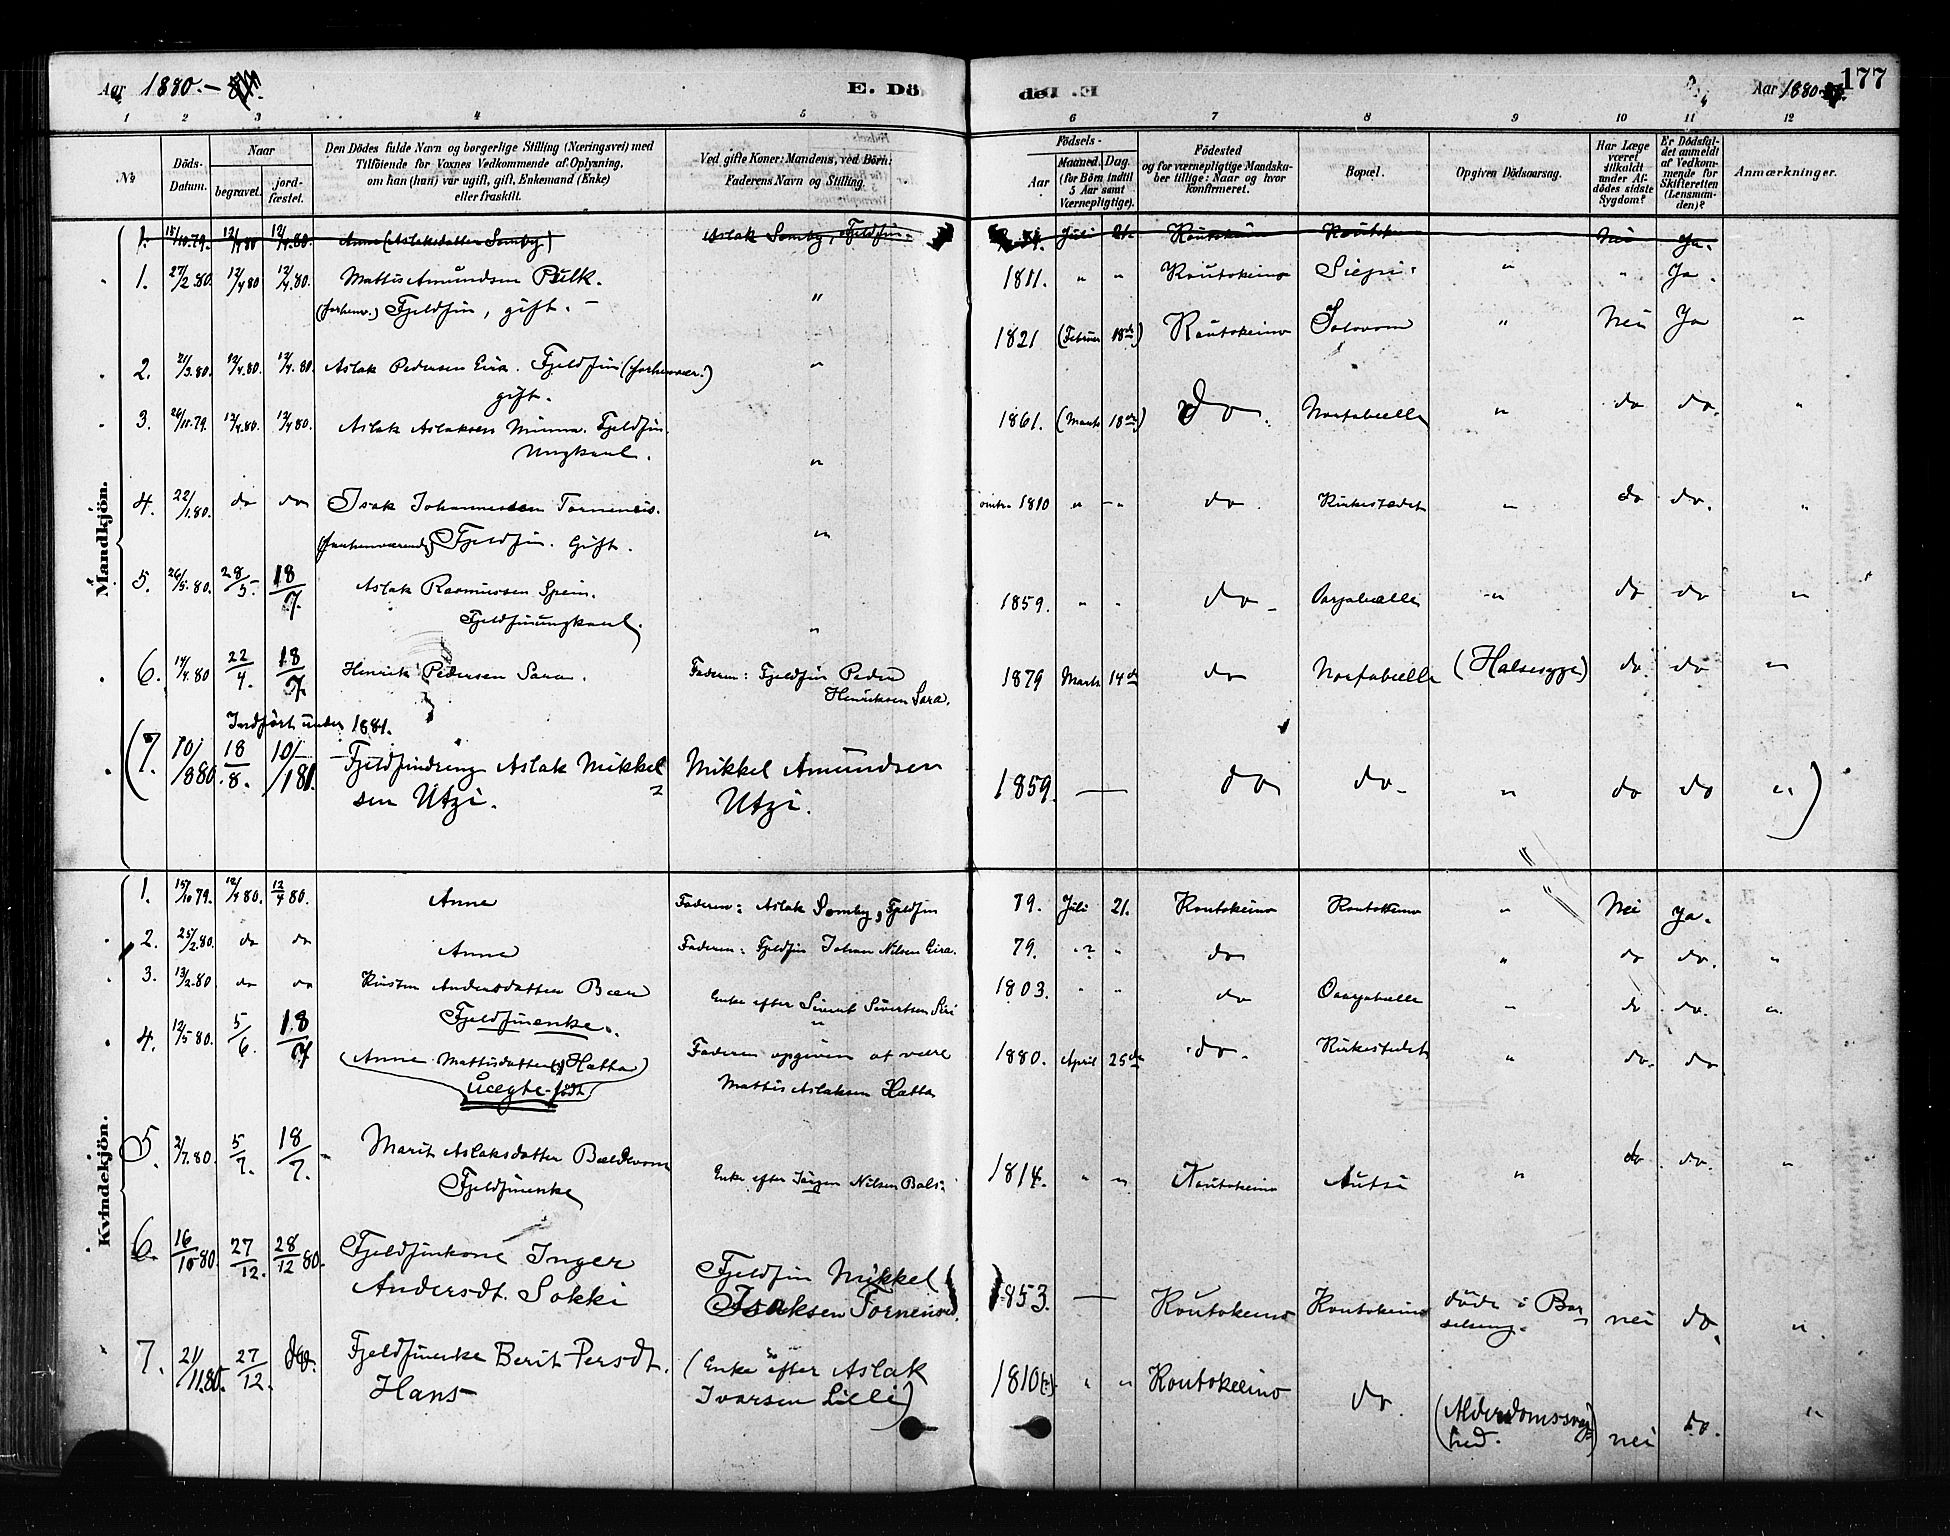 Aar 1880.-
E. Dö
1 2 3 4 5 6
No
Döds-Datum.
Naar
begravet.
jord-fæstet.
Den Dödes fulde Navn og borgerlige Stilling (Næringsvei) med
Tilföiende for Voxnes Vedkommende af Oplysning,
om han (hun) var ugift, gift, Enkemand (Enke)
eller fraskilt.
Ved gifte Koner: Mandens, ved Börn:
Faderens Navn og Stilling.
Mandkjön.
1. 15/10.79. 12/4 80 12/4.80. Anne (Aslaksdatter Somby) Aslak Somby, Fjeldfin.
1. 27/2.80. 12/4 80 12/4.80. Mattis Amundsen Pulk. "
(forhenv.) Fjeldfin, gift.-
2. 21/3.80. 12/4.80. 12/4.80 Aslak Pedersen Eira. Fjeldfin (forhenvær.) "
gift.
3. 26/11.79. 12/4.80. 12/4 80. Aslak Aslaksen Fjeldfin.
Ungkarl. "
4. 22/1.80. do do Isak Johannessen Torneneis.
Fjeldfin. Gift. "
5. 26/5.80. 28/5- 18/7. Aslak Rasmussen Spein.
Fjeldfinungkarl. "
6. 14/4.80 22/4. 18/7. Henrik Pedersen Sara. Faderen: Fjeldfin Peder
Henriksen Sara.
Indført under 1881.
(7. 10/880. 18/8. 10/181. Fjeldfindreng Aslak Mikkel Mikkel Amundsen
sen Utzi. Utzi.
Kvindekjön.
1. 15/10 79. 12/4 80. 12/4 80. Anne Faderen: Aslak Somby, Fjeldfin
2. 25/2.80. do do Anne Faderen: Fjeldfin Johan Nilsen Eira.
3. 13/2.80 do do Kirsten Andersdatter Bær Enke efter Sivert Sivertsen Siri
Fjeldfinenke. "
4. 12/5 80. 5/6. 18/7 (Anne Mattisdatter Hætta) Faderen opgiven at være
uægte født Mattis Aslaksen Hætta
5. 2/7.80. 5/7. 18/7. Marit Aslaksdatter Bældevom
Fjeldfinenke Enke efter Jørgen Nilsen Bals.
6. 16/10 80. 27/12. 28/12 80. Fjeldfinkone Inger Fjeldfin Mikkel
Andersdt. Sokki Isaksen Torneneis.
7. 21/11.80. 27/12. do. Fjeldfinenke Berit Persdt. (Enke efter Aslak
Hans Ivarsen Lilli)
177
Aar 1880.
6 7 8 9 10 11 12
Födsels-
Aar
Maaned. Dag.
(for Börn indtil
5 Aar samt
Værnepligtige).
Födested
og for værnepligtige Mandska-
ber tillige: Naar og hvor
konfirmeret.
Bopæl.
Opgiven Dödsaarsag.
Har Læge
været
tilkaldt
under Af-
dödes sidste
Sygdom?
Er Dödsfal-
det anmeldt
af Vedkom-
mende for
Skifteretten
(Lensman-
den)?
Anmærkninger.
Juli 21. Koutokeino Koutok Nei Ja.
1811. " " Koutokeino Siepi. " " Ja.
1821 (Februar 18de) Koutokeino Solovom " Nei Ja "
1861. (Marts 18de) do. Nortabælle " do do. "
1810 " -" do. Kirkestedet " do do. "
1859. " " do- Oarjabælle " do do "
1879 Marts 14de do Nortabælle (Halsesyge) do do "
1859. — do do- " do do ")
79. Juli 21. Koutokeino Koutokeino " Nei Ja.
79. "?" " do " do do. "
1803. " " do Oarjabælle " do do. "
1880. April 25de do. Kirkestedet " do. do
1814. " " Koutokeino Autsi " do do. "
1853. — Koutokeino Koutokeino døde i Bar-
selseng. nei do. "
1810(?) " " Koutokeino do. (Alderdomssvag-
hed.) nei do. "